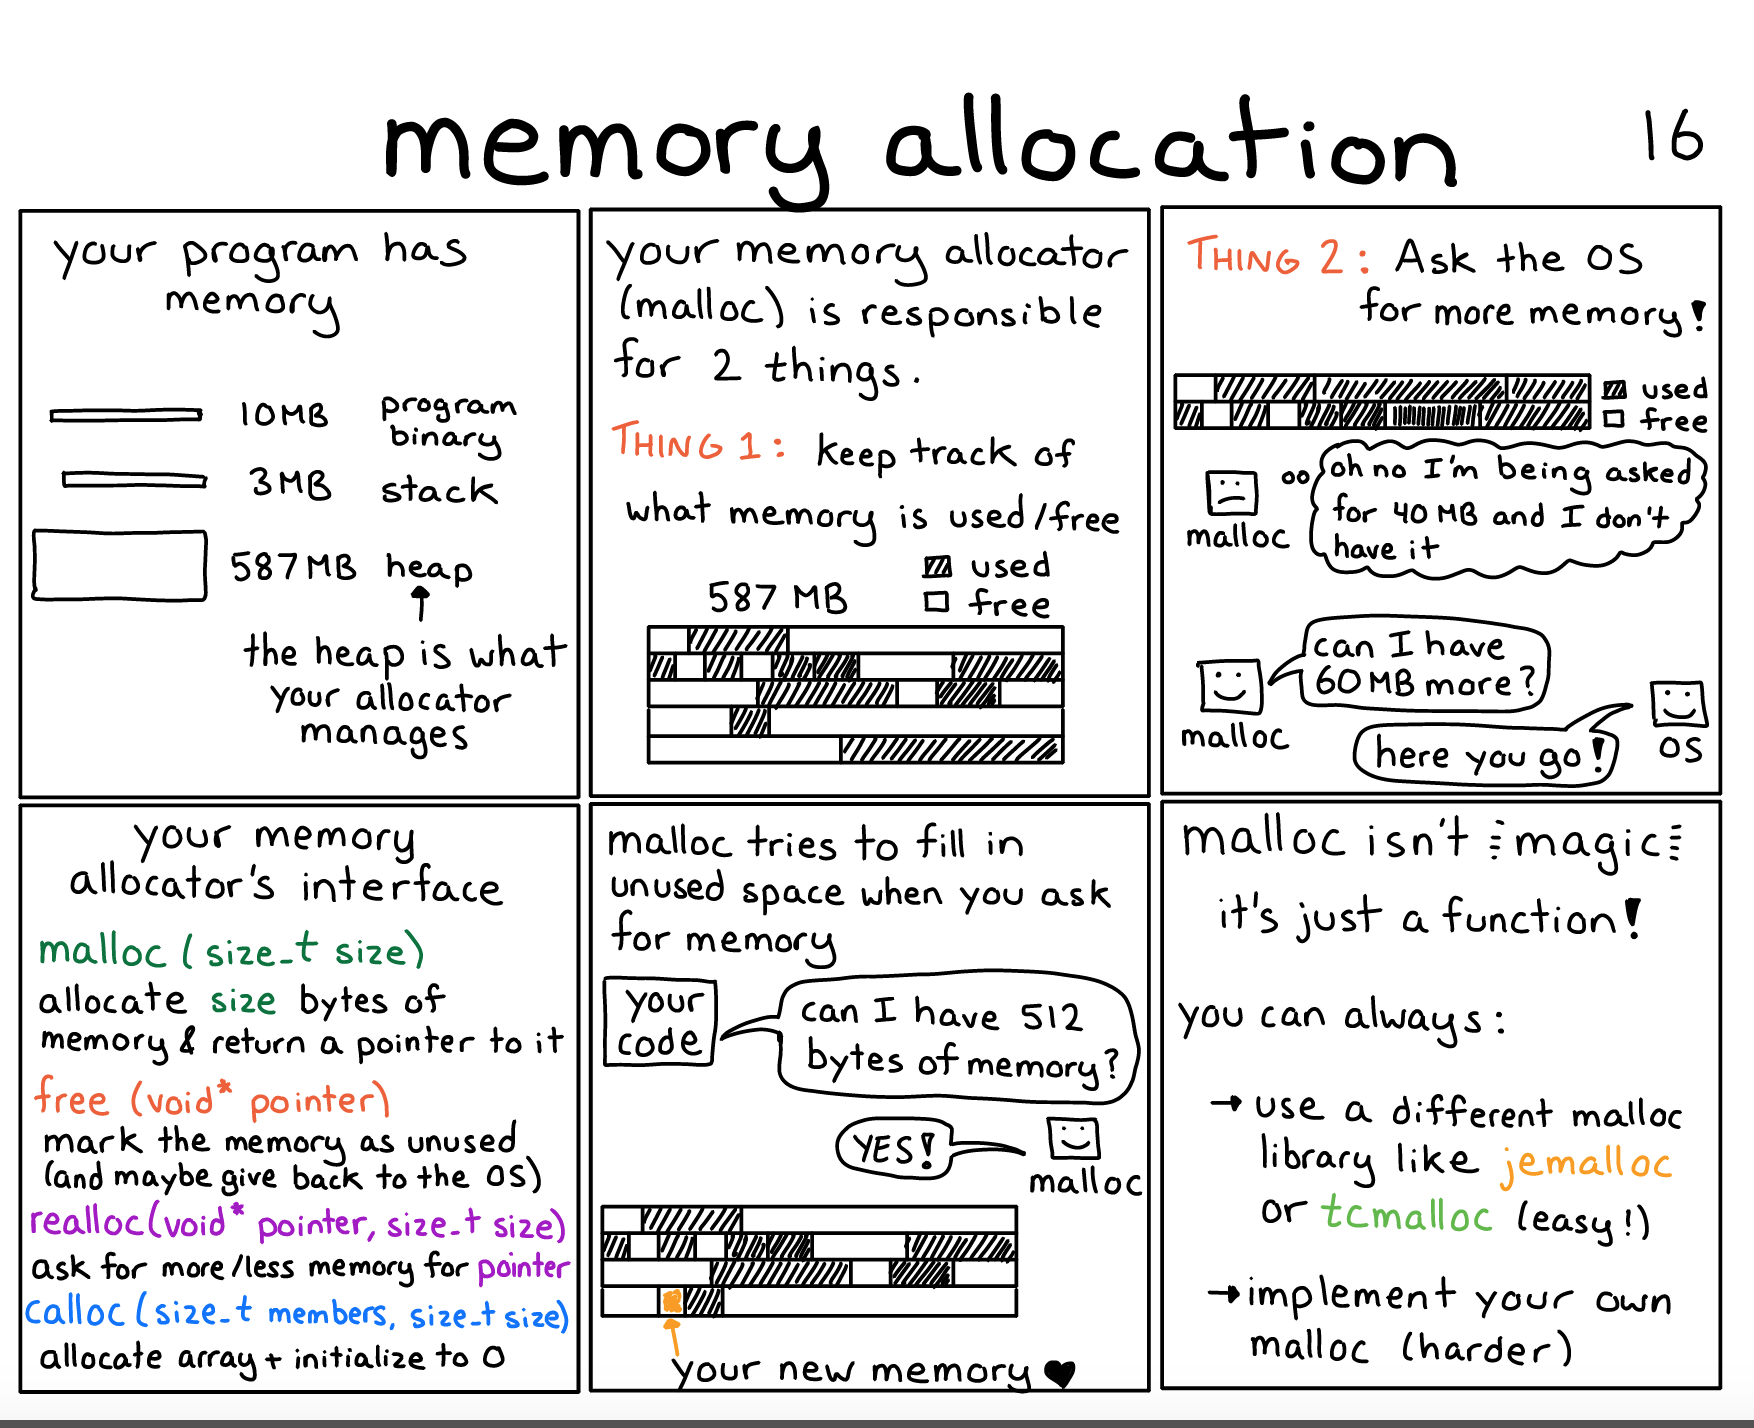 memory allocation
16
your program has
memory
10MB program
binary
3MB stack
587MB heap
the heap is what
your allocator
manages
your memory allocator
(malloc) is responsible
for 2 things.
THING 1: keep track of
what memory is used/free
587 MB
used
free
THING 2: Ask the OS
for more memory!
used
free
malloc
oh no I'm being asked
for 40 MB and I don't
have it
can I have
60MB more?
malloc
here you go!
OS
your memory
allocator's interface
malloc (size_t size)
allocate size bytes of
memory & return a pointer to it
free (void* pointer)
mark the memory as unused
(and maybe give back to the OS)
realloc(void* pointer, size_t size)
ask for more/less memory for pointer
calloc (size_t members, size_t size)
allocate array + initialize to 0
malloc tries to fill in
unused space when you ask
for memory
your
code
can I have 512
bytes of memory?
YES!
malloc
your new memory ♥
malloc isn't magic
it's just a function!
you can always:
→ use a different malloc
library like jemalloc
or tcmalloc (easy!)
→ implement your own
malloc (harder)